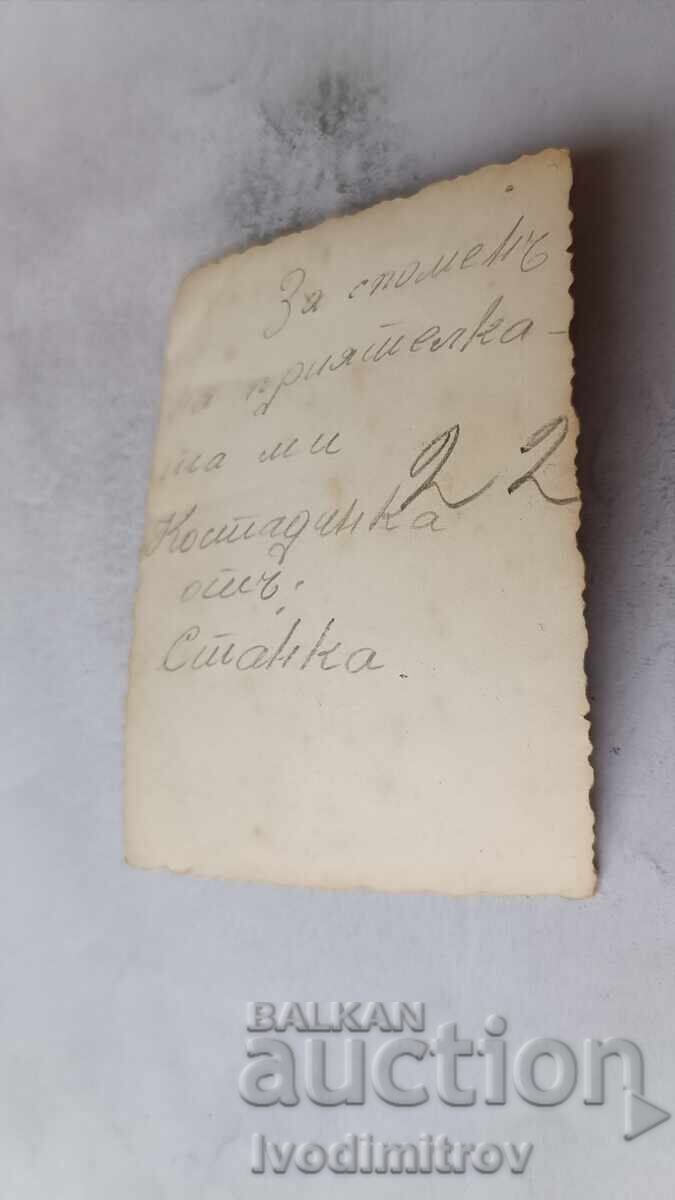 За споменъ
на приятелка-
та ми
22
Костадинка
отъ:
Станка.
BALKAN
auction
Ivodimitrov